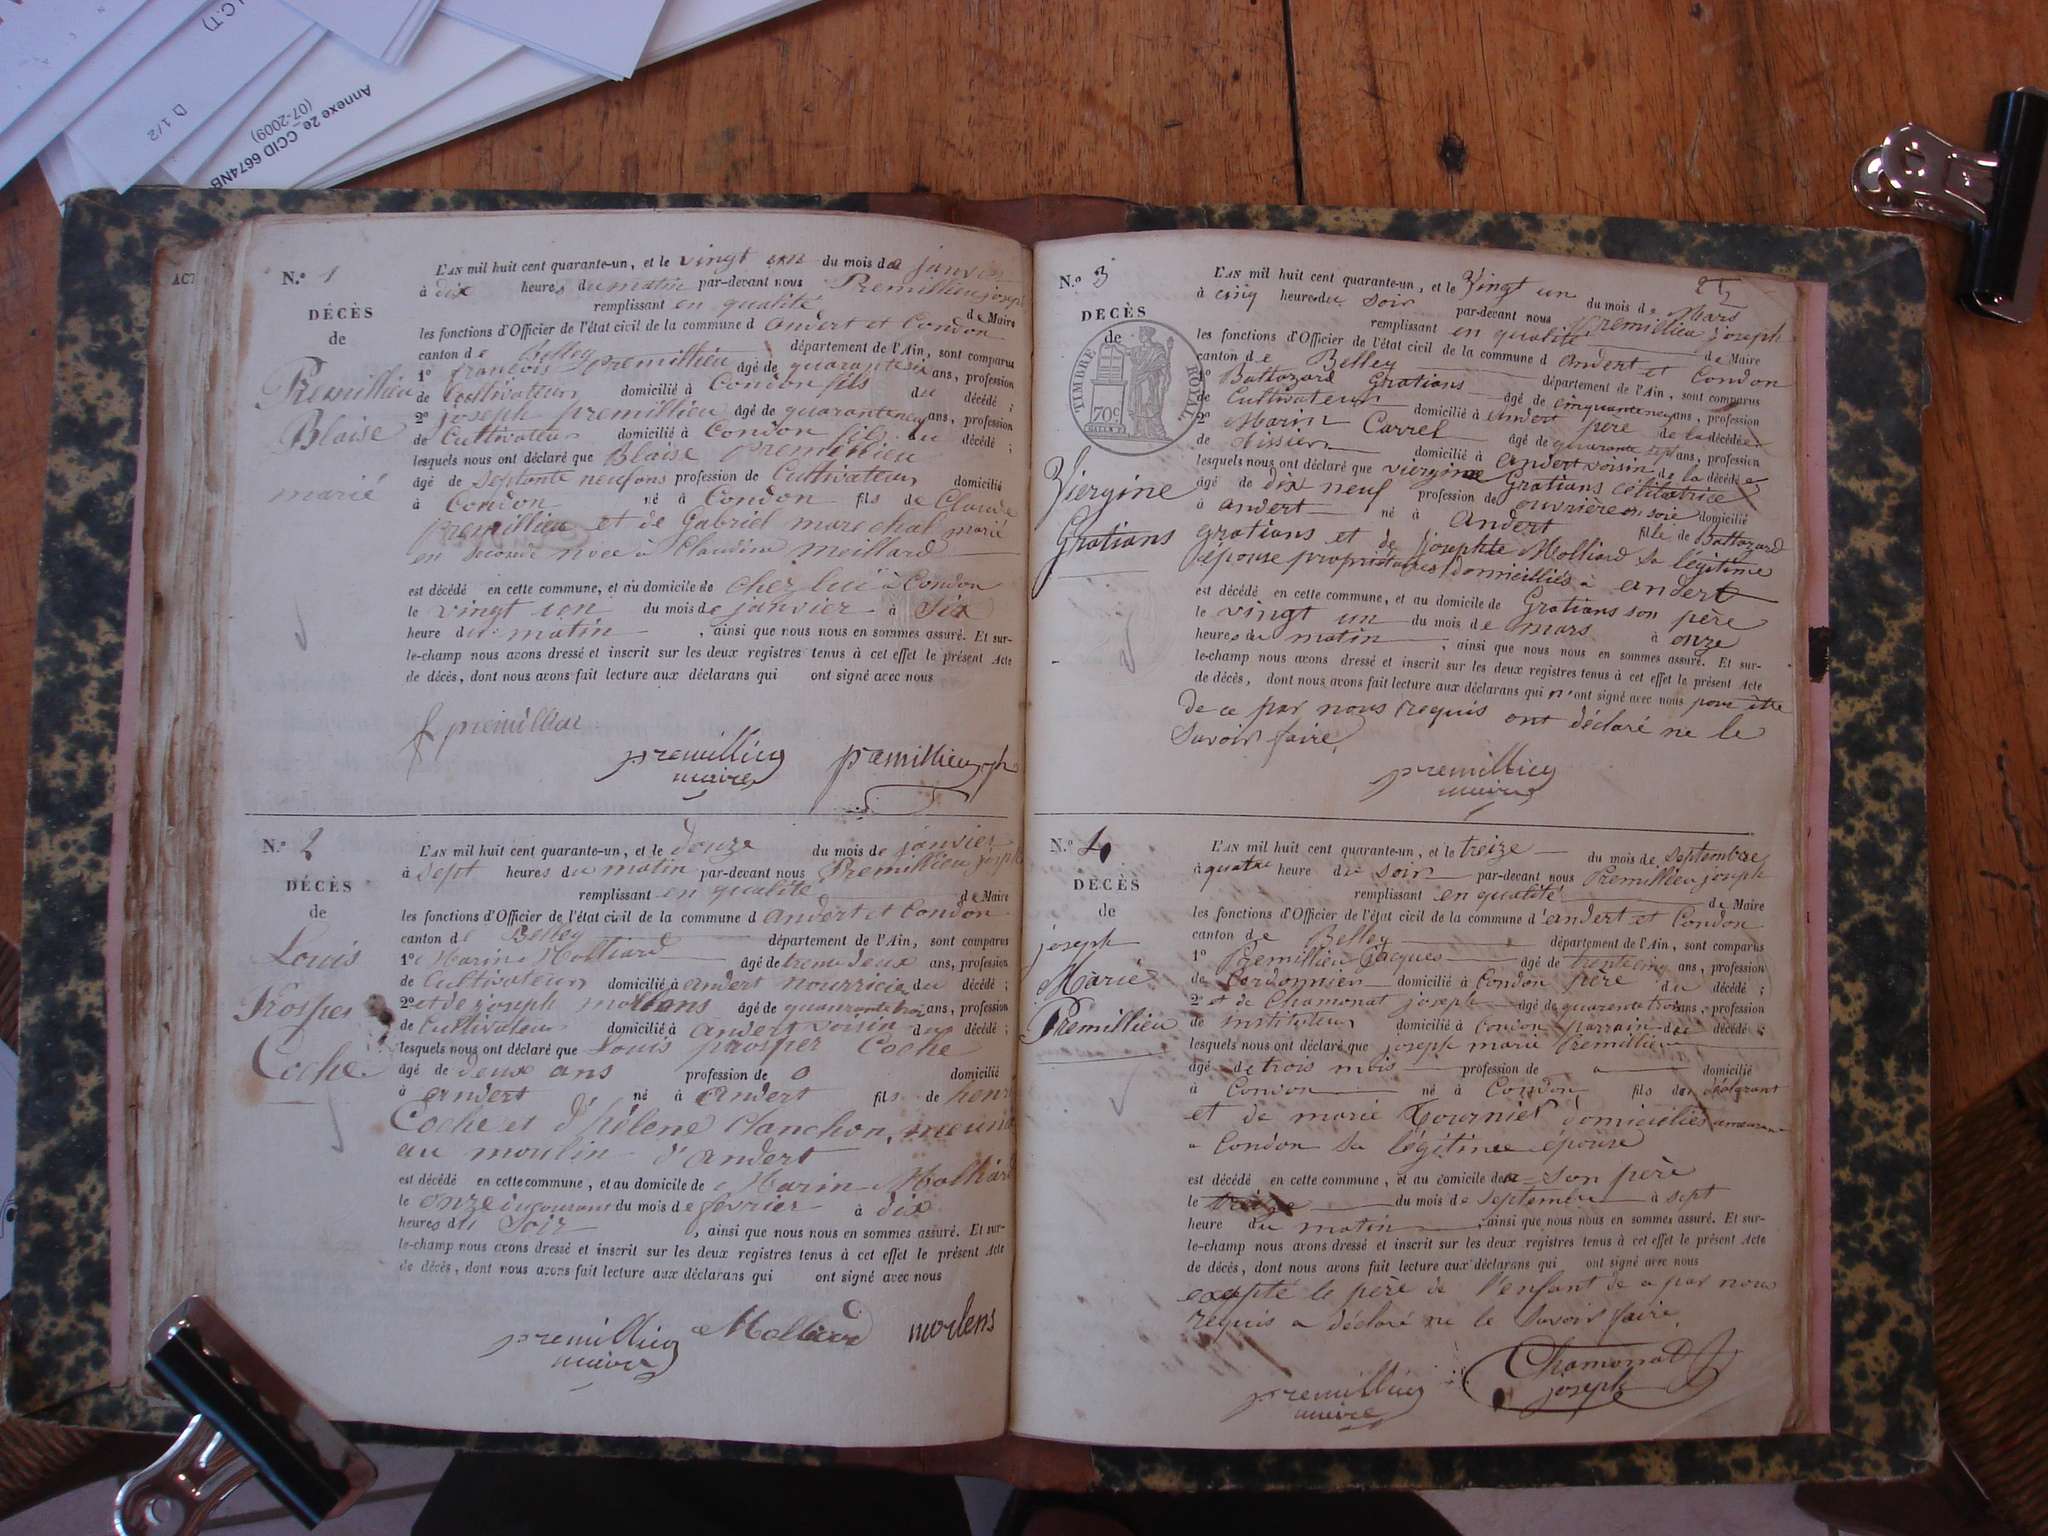 C.T)
1/2
Annexe 2e_CCID 6674NB
(07-2009)
N.º 1
DÉCÈS
de
Premillieu
Blaise
marié
L'AN mil huit cent quarante-un, et le vingt un du mois de janvier
à dix heures du matin par-devant nous Premillieu joseph
remplissant en qualité de Maire
les fonctions d'Officier de l'état civil de la commune d andert et Condon
canton de Belley département de l'Ain, sont comparus
1º françois Premillieu âgé de quarante six ans, profession
de Cultivateur domicilié à Condon fils du décédé ;
2º joseph premillieu âgé de quarante neuf ans, profession
de Cultivateur domicilié à Condon fils du décédé ;
lesquels nous ont déclaré que Blaise Premillieu
âgé de septante neuf ans profession de Cultivateur domicilié
à Condon né à Condon fils de Claude
premillieu et de Gabriel marechal marié
en seconde noce à Claudine Meillard
est décédé en cette commune, et au domicile de chez lui à Condon
le vingt un du mois de janvier à six
heure du matin , ainsi que nous nous en sommes assuré. Et sur-
le-champ nous avons dressé et inscrit sur les deux registres tenus à cet effet le présent Acte
de décès, dont nous avons fait lecture aux déclarans qui ont signé avec nous
f premillieu
premillieu
maire
premillieu jph
N.º 2
DÉCÈS
de
Louis
Prosper
Coche
L'AN mil huit cent quarante-un, et le douze du mois de janvier
à sept heures du matin par-devant nous Premillieu joseph
remplissant en qualité de Maire
les fonctions d'Officier de l'état civil de la commune d andert et Condon
canton de Belley département de l'Ain, sont comparus
1º Marin Molliard âgé de trente deux ans, profession
de Cultivateur domicilié à andert nourricier du décédé ;
2º et de joseph mortens âgé de quarante trois ans, profession
de Cultivateur domicilié à andert voisin du décédé ;
lesquels nous ont déclaré que Louis prosper Coche
âgé de deux ans profession de 0 domicilié
à andert né à andert fils de henri
Coche et d'hélene Clanchon, meunier
au moulin d'andert
est décédé en cette commune, et au domicile de Marin Molliard
le onze du courant du mois de fevrier à dix
heures du soir , ainsi que nous nous en sommes assuré. Et sur-
le-champ nous avons dressé et inscrit sur les deux registres tenus à cet effet le présent Acte
de décès, dont nous avons fait lecture aux déclarans qui ont signé avec nous
premillieu
maire
Molliard
mortens
N.º 3
DÉCÈS
de
TIMBRE ROYAL
70c
Viergine
Gratians
L'AN mil huit cent quarante-un, et le Vingt un du mois de Mars
à cinq heures du soir par-devant nous Premillieu joseph
remplissant en qualité de Maire
les fonctions d'Officier de l'état civil de la commune d andert et Condon
canton de Belley département de l'Ain, sont comparus
1º Baltazard Gratians âgé de cinquante neuf ans, profession
de Cultivateur domicilié à andert père de la décédée
2º Marin Carrel âgé de quarante sept ans, profession
de tissier domicilié à andert voisin de la décédée
lesquels nous ont déclaré que viergine Gratians célibatrice
âgé de dix neuf profession de ouvrière en soie domicilié
à andert né à Andert fille de Baltazard
gratians et de josephte Molliard sa légitime
épouse propriétaires domiciliés à andert
est décédé en cette commune, et au domicile de Gratians son père
le vingt un du mois de mars à onze
heures du matin , ainsi que nous nous en sommes assuré. Et sur-
le-champ nous avons dressé et inscrit sur les deux registres tenus à cet effet le présent Acte
de décès, dont nous avons fait lecture aux déclarans qui n'ont signé avec nous pour être
de ce par nous requis ont déclaré ne le
savoir faire
premillieu
maire
N.º 4
DÉCÈS
de
joseph
Marie
Premillieu
L'AN mil huit cent quarante-un, et le treize du mois de septembre
à quatre heure du soir par-devant nous Premillieu joseph
remplissant en qualité de Maire
les fonctions d'Officier de l'état civil de la commune d'andert et Condon
canton de Belley département de l'Ain, sont comparus
1º Premillieu jacques âgé de trente cinq ans, profession
de Cordonnier domicilié à Condon père du décédé ;
2º et de Chamonat joseph âgé de quarente trois ans, profession
de instituteur domicilié à Condon parrain du décédé ;
lesquels nous ont déclaré que joseph marie Premillieu
âgé de trois mois profession de domicilié
à Condon né à Condon fils du déclarant
et de marie Tournier domiciliés
à Condon sa légitime épouse
est décédé en cette commune, et au domicile de son père
le treize du mois de septembre à sept
heure du matin , ainsi que nous nous en sommes assuré. Et sur-
le-champ nous avons dressé et inscrit sur les deux registres tenus à cet effet le présent Acte
de décès, dont nous avons fait lecture aux déclarans qui ont signé avec nous
excepté le père de l'enfant de a par nous
requis a déclaré ne le savoir faire.
premillieu
maire
Chamonat
joseph